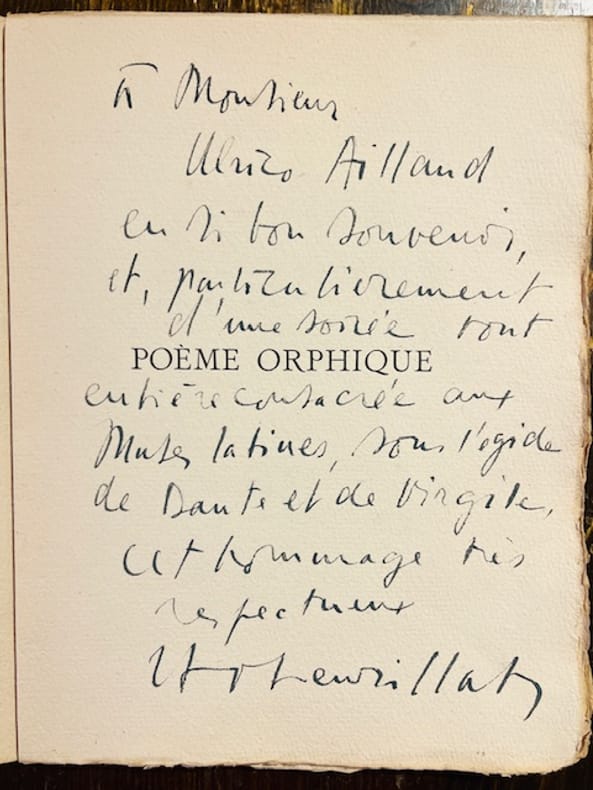 A Monsieur
Ulrico Ailland
en si bon souvenir,
et, particulièrement
d'une soirée tout
POÈME ORPHIQUE
entière consacrée aux
Muses latines, sous l'égide
de Dante et de Virgile,
cet hommage très
respectueux